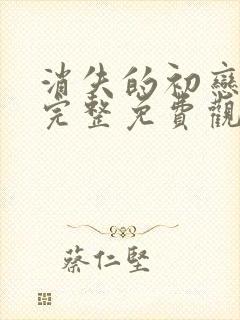 消失的初戀
完整免費觀
蔡仁堅